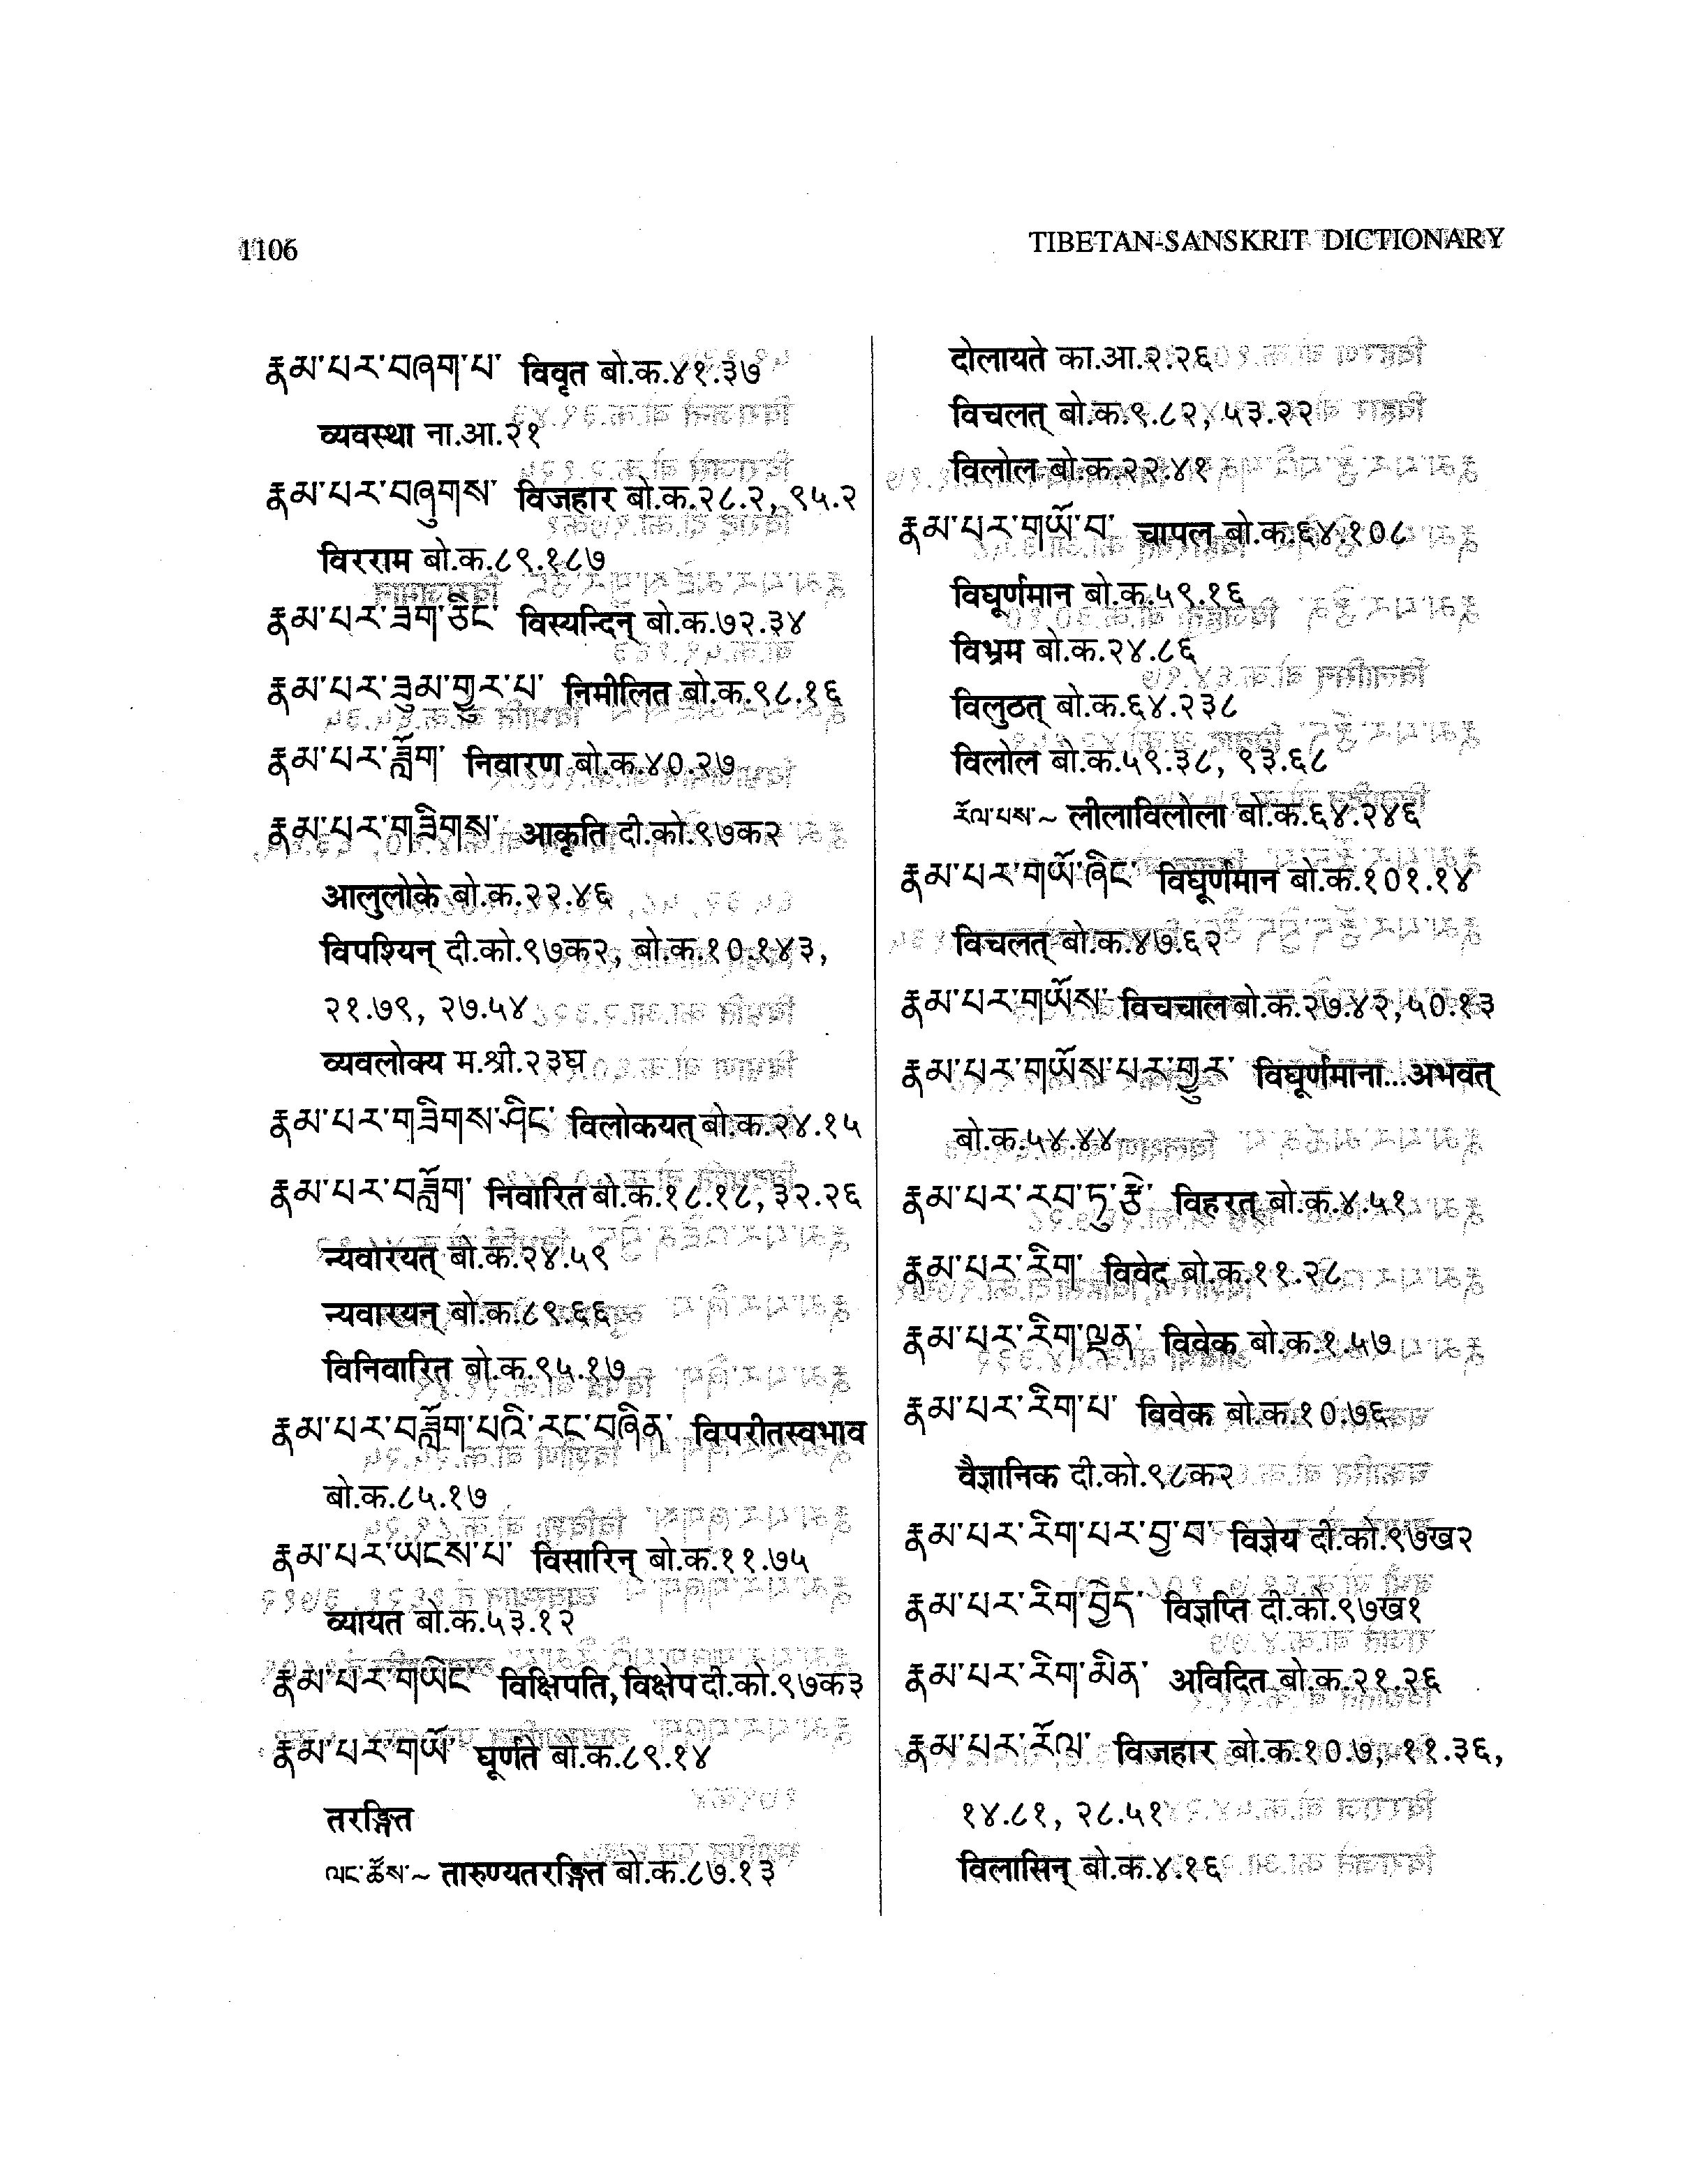 1106
TIBETAN-SANSKRIT DICTIONARY
རྣམ་པར་བཞག་པ་ विवृत बो.क.४१.३७
व्यवस्था ना.आ.२१
རྣམ་པར་བཞུགས་ विजहार बो.क.२८.२, ९५.२
विरराम बो.क.८९.१८७
རྣམ་པར་ཟག་ཅིང་ विस्यन्दिन् बो.क.७२.३४
རྣམ་པར་ཟུམ་གྱུར་པ་ निमीलित बो.क.९८.१६
རྣམ་པར་ཟློག་ निवारण बो.क.४०.२७
རྣམ་པར་གཟིགས་ आकृति दी.को.९७क२
आलुलोके बो.क.२२.४६
विपश्यिन् दी.को.९७क२, बो.क.१०.१४३,
२१.७९, २७.५४
व्यवलोक्य म.श्री.२३घ
རྣམ་པར་གཟིགས་ཤིང་ विलोकयत् बो.क.२४.१५
རྣམ་པར་བཟློག་ निवारित बो.क.१८.१८, ३२.२६
न्यवारयत् बो.क.२४.५९
न्यवारयन् बो.क.८९.६६
विनिवारित बो.क.९५.१७
རྣམ་པར་བཟློག་པའི་རང་བཞིན་ विपरीतस्वभाव
बो.क.८५.१७
རྣམ་པར་ཡངས་པ་ विसारिन् बो.क.११.७५
व्यायत बो.क.५३.१२
རྣམ་པར་གཡེང་ विक्षिपति, विक्षेप दी.को.९७क३
རྣམ་པར་གཡོ་ घूर्णते बो.क.८९.१४
तरङ्गित
ལང་ཚོས་~ तारुण्यतरङ्गित बो.क.८७.१३
दोलायते का.आ.२.२६
विचलत् बो.क.९.८२, ५३.२२
विलोल बो.क.२२.४१
རྣམ་པར་གཡོ་བ་ चापल बो.क.६४.१०८
विघूर्णमान बो.क.५९.१६
विभ्रम बो.क.२४.८६
विलुठत् बो.क.६४.२३८
विलोल बो.क.५९.३८, ९३.६८
རོལ་པས་~ लीलाविलोला बो.क.६४.२४६
རྣམ་པར་གཡོ་ཞིང་ विघूर्णमान बो.क.१०१.१४
विचलत् बो.क.४७.६२
རྣམ་པར་གཡོས་ विचचाल बो.क.२७.४२, ५०.१३
རྣམ་པར་གཡོས་པར་གྱུར་ विघूर्णमाना...अभवत्
बो.क.५४.४४
རྣམ་པར་རབ་ཏུ་རྩེ་ विहरत् बो.क.४.५१
རྣམ་པར་རིག་ विवेद बो.क.११.२८
རྣམ་པར་རིག་ལྡན་ विवेक बो.क.१.५७
རྣམ་པར་རིག་པ་ विवेक बो.क.१०.७६
वैज्ञानिक दी.को.९८क२
རྣམ་པར་རིག་པར་བྱ་བ་ विज्ञेय दी.को.९७ख२
རྣམ་པར་རིག་བྱེད་ विज्ञप्ति दी.को.९७ख१
རྣམ་པར་རིག་མིན་ अविदित बो.क.२१.२६
རྣམ་པར་རོལ་ विजहार बो.क.१०.७, ११.३६,
१४.८१, २८.५१
विलासिन् बो.क.४.१६